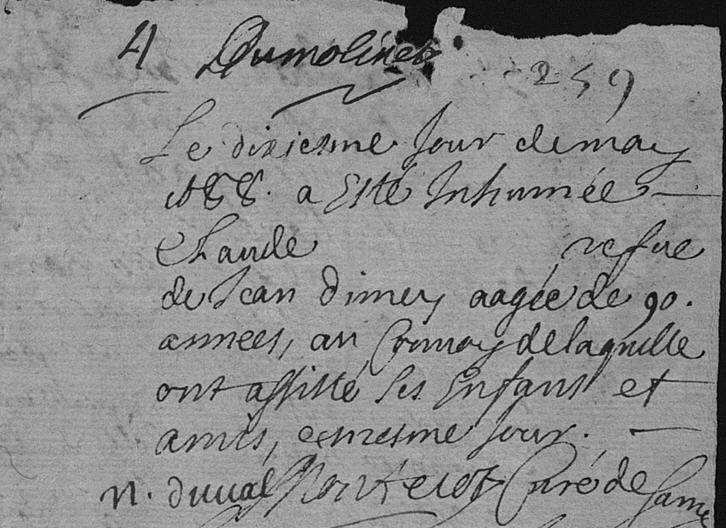 4 Dumolinet
259
Le dixiesme Jour de may
1688. a Esté Inhumée
Claude vefue
de Jean dimey aagée de 90.
années, au Conuoy de laquelle
ont assisté ses Enfans et
amis, ce mesme Jour.
n. duval Curé de